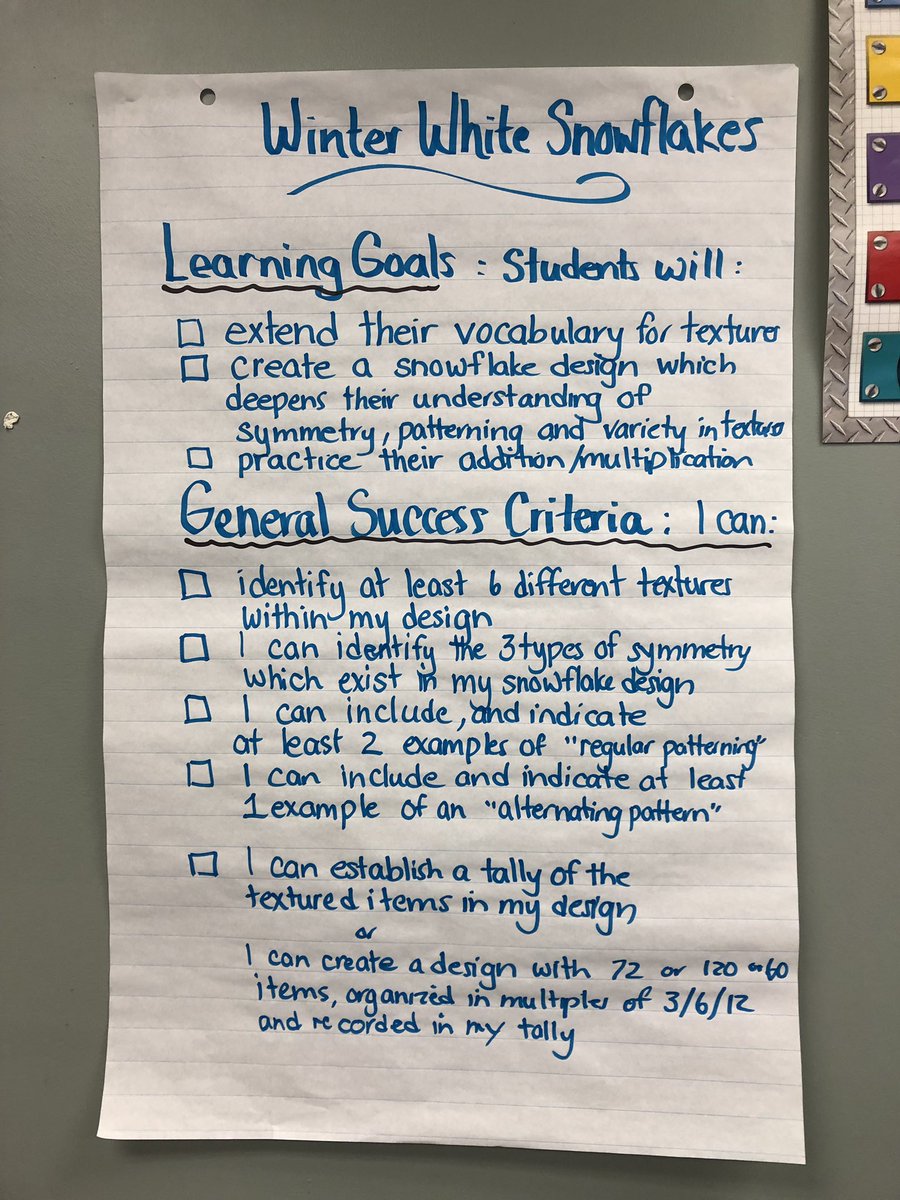 Winter White Snowflakes
Learning Goals : Students will :
extend their vocabulary for textures
create a snowflake design which
deepens their understanding of
symmetry, patterning and variety in textures
practice their addition/multiplication
General Success Criteria : I can:
identify at least 6 different textures
within my design
I can identify the 3 types of symmetry
which exist in my snowflake design
I can include, and indicate
at least 2 examples of "regular patterning"
I can include and indicate at least
1 example of an "alternating pattern"
I can establish a tally of the
textured items in my design
or
I can create a design with 72 or 120 or 60
items, organized in multiples of 3/6/12
and recorded in my tally